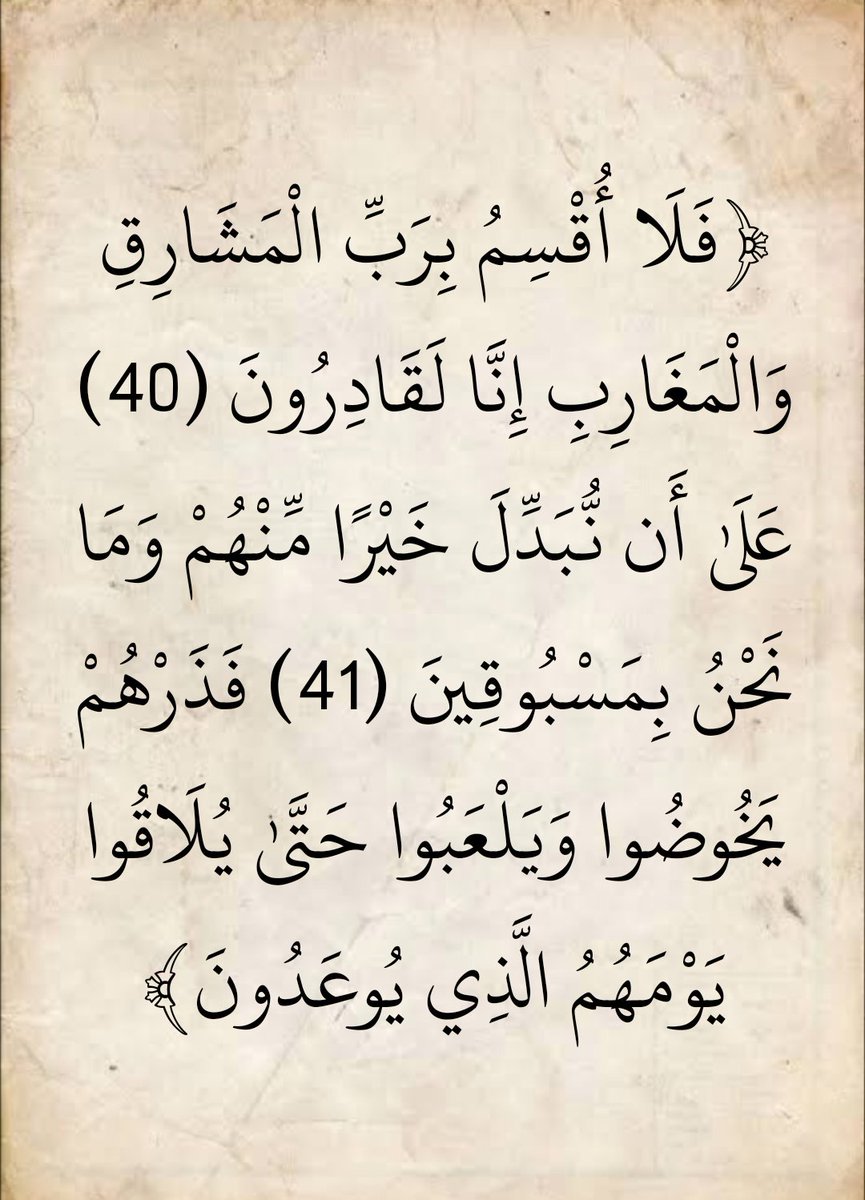 ﴿فَلَا أُقْسِمُ بِرَبِّ الْمَشَارِقِ
وَالْمَغَارِبِ إِنَّا لَقَادِرُونَ (40)
عَلَىٰ أَن نُّبَدِّلَ خَيْرًا مِّنْهُمْ وَمَا
نَحْنُ بِمَسْبُوقِينَ (41) فَذَرْهُمْ
يَخُوضُوا وَيَلْعَبُوا حَتَّىٰ يُلَاقُوا
يَوْمَهُمُ الَّذِي يُوعَدُونَ﴾